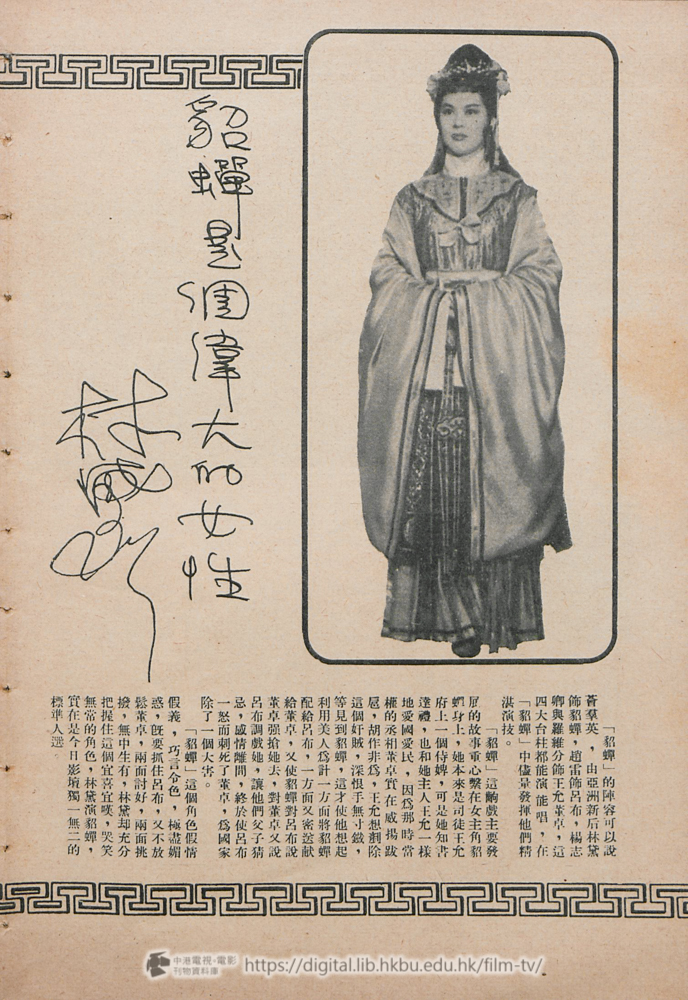 貂蟬是個偉大的女性
林黛
「貂蟬」的陣容可以說
薈羣英，由亞洲新后林黛
飾貂蟬，趙雷飾呂布，楊志
卿與羅維分飾王允董卓，這
四大台柱都能演能唱，在
「貂蟬」中儘量發揮他們精
湛演技。
「貂蟬」這齣戲主要發
展的故事重心繫在女主角貂
蟬身上，她本來是司徒王允
府上一個侍婢，可是她知書
達禮，也和她主人王允一樣
地愛國愛民，因爲那時當
權的丞相董卓實在威揚跋
扈，胡作非爲，王允想剷除
這個奸賊，深恨手無寸鐵，
等見到貂蟬，這才使他想起
利用美人爲計一方面將貂蟬
配給呂布，一方面又密送獻
給董卓，又使貂蟬對呂布說
董卓强搶她去，對董卓又說
呂布調戲她，讓他們父子猜
忌，感情離間，終於使呂布
一怒而刺死了董卓，爲國家
除了一個大害。
「貂蟬」這個角色假情
假義，巧言令色，極盡媚
惑，旣要抓住呂布，又不放
鬆董卓，兩面討好，兩面挑
撥，無中生有，林黛却充分
把握住這個宜喜宜嗔，哭笑
無常的角色，林黛演貂蟬，
實在是今日影壇獨一無二的
標準人選。
中港電視·電影
刊物資料庫
https://digital.lib.hkbu.edu.hk/film-tv/